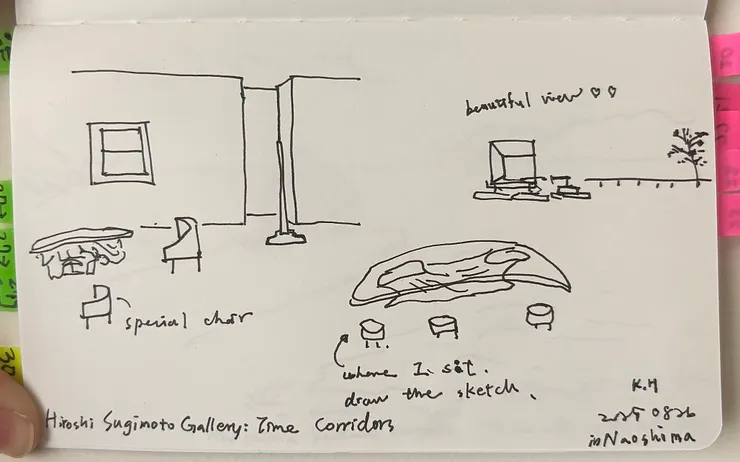 beautiful view ♡ ♡
special chair
where I sit.
draw the sketch.
K.M
2025 0826
in Naoshima
Hiroshi Sugimoto Gallery: Time Corridors